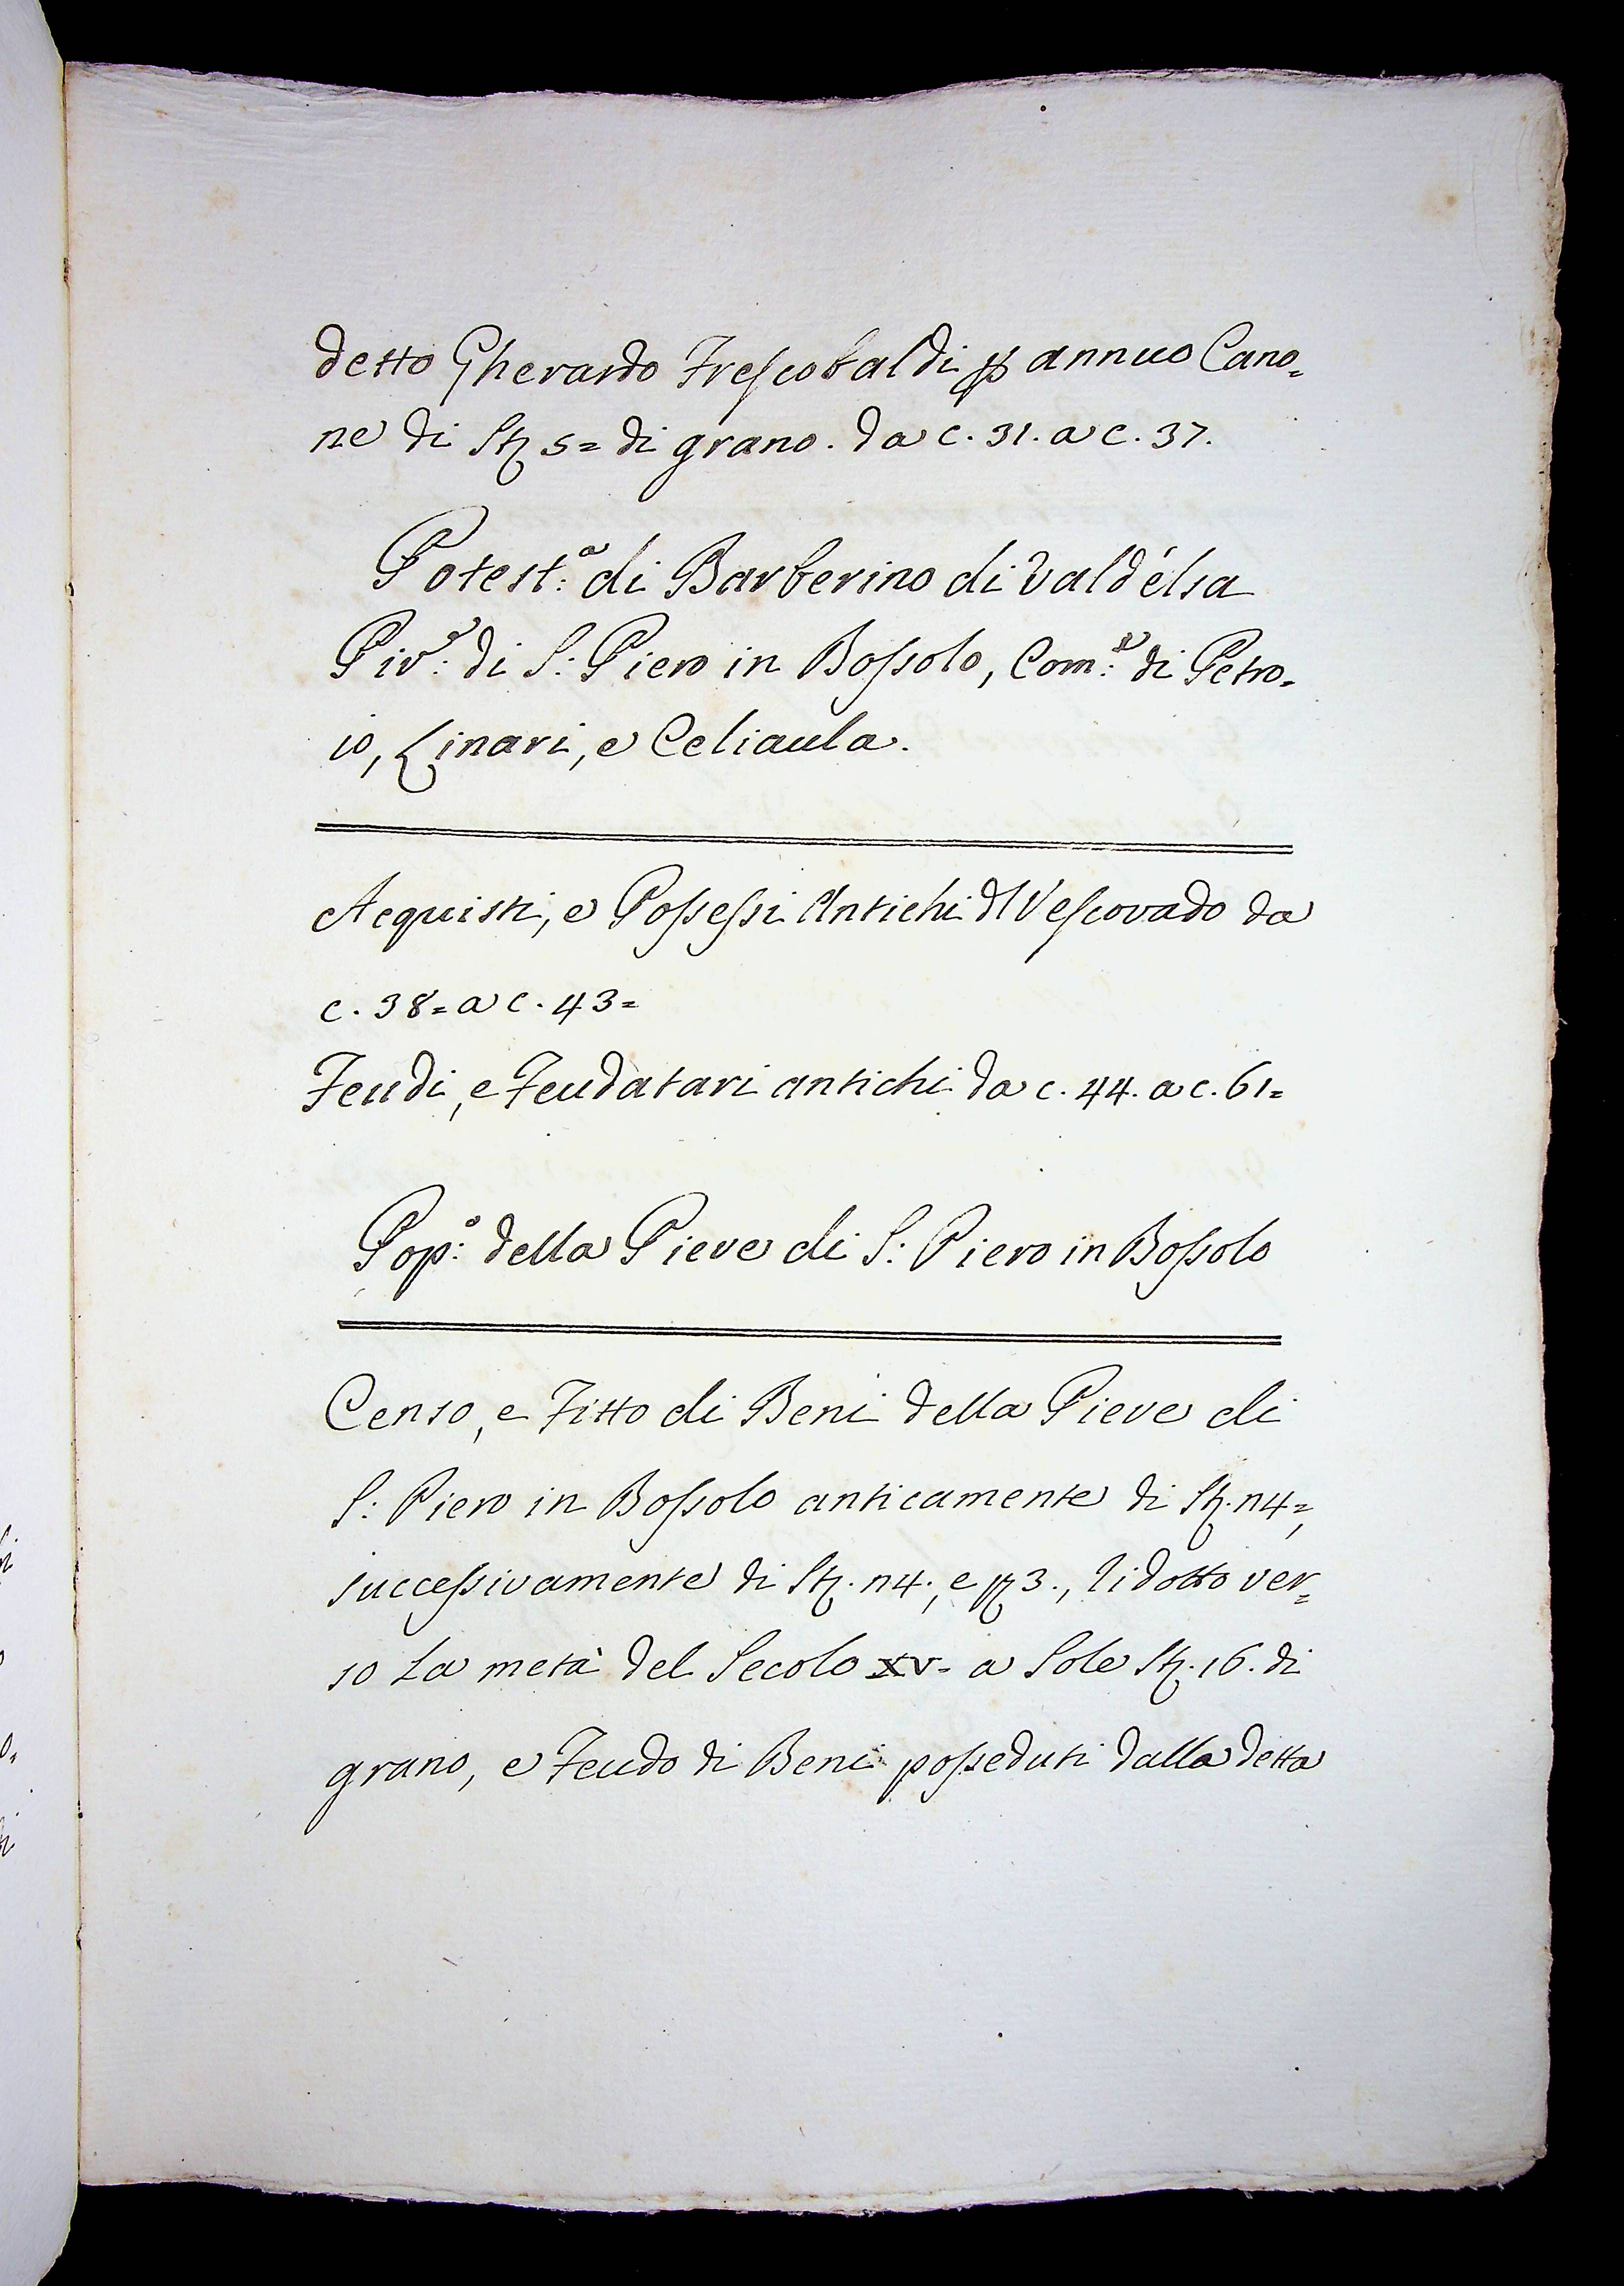 detto Gherardo Frescobaldi ꝑ annuo Cano=
ne di St.ª 5= di grano. da c. 31. a c. 37.
Potest:ª di Barberino di Vald'elsa
Piv:ᵉ di S: Piero in Bossolo, Com:ᵉ di Petro=
io, Linari, e Celiaula.
Acquisti, e Possessi Antichi dl Vescovado da
c. 38= a c. 43=
Feudi, e Feudatari antichi da c. 44. a c. 61=
Pop:º della Pieve di S: Piero in Bossolo
Censo, e Fitto di Beni della Pieve di
S: Piero in Bossolo anticamente di St.ª n4=,
successivamente di St.ª n4., e 3., ridotto ver=
so La metà del Secolo XV= a Sole St.ª 16. di
grano, e Feudo di Beni posseduti dalla detta